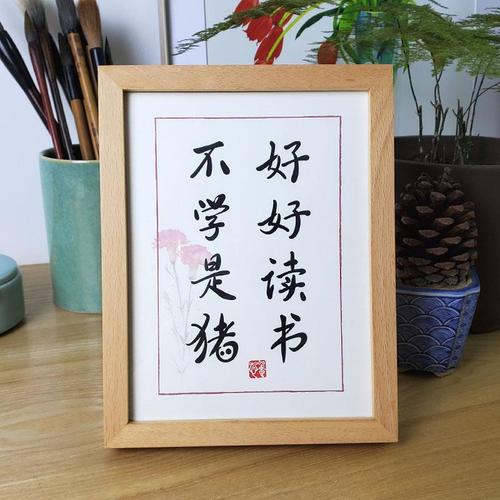 好好读书
不学是猪